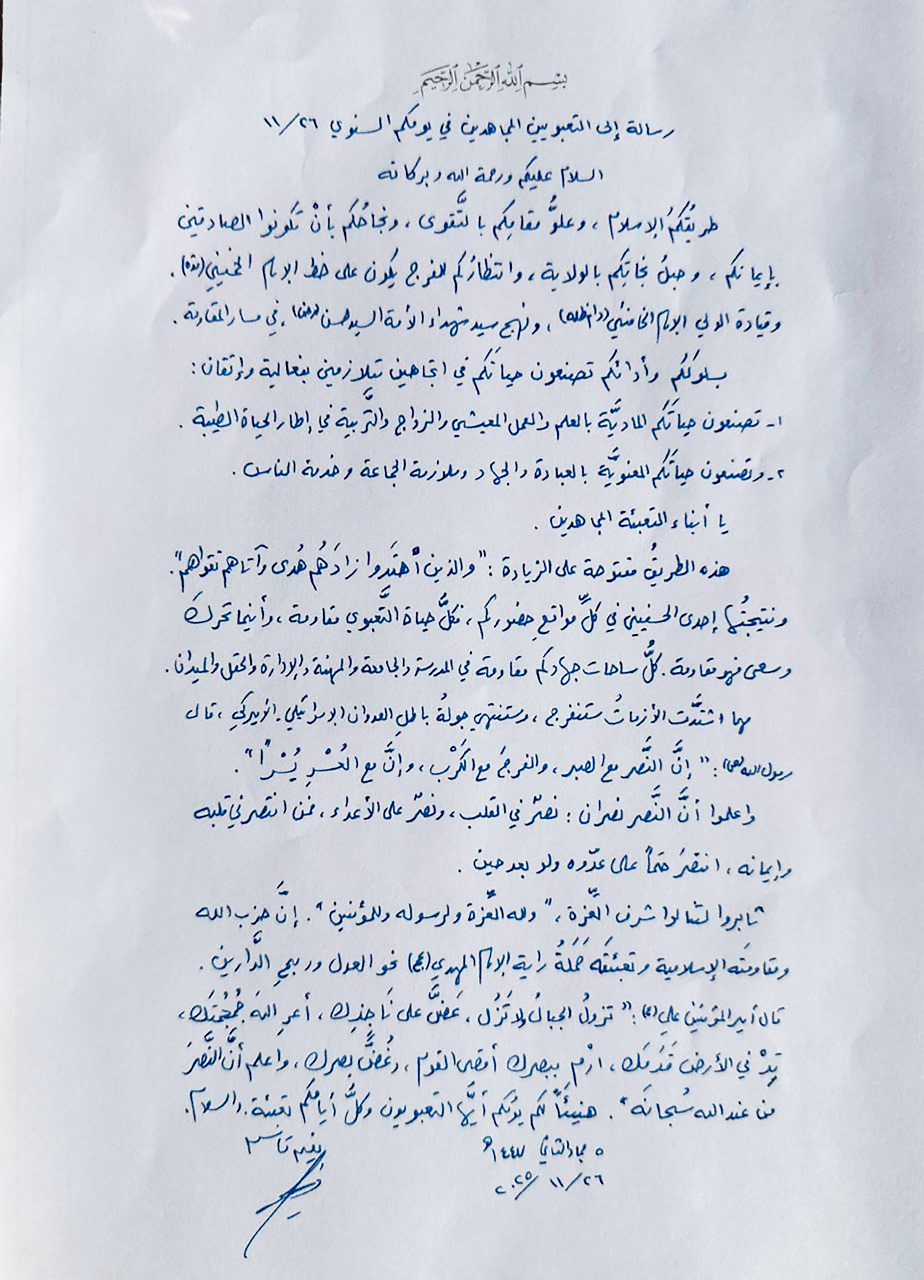 بسم الله الرحمن الرحيم
رسالة إلى التعبويين المجاهدين في يومكم السنوي ٢٦/١١
السلام عليكم ورحمة الله وبركاته
طريقُكُمُ الإسلام، وعلوُّ مقامِكم بالتَّقوى، ونجاحُكم بأنْ تكونوا الصادقين
بإيمانكم، وحبلُ نجاتِكم بالولاية، وانتظارُكم للفرج يكون على خط الإمام الخميني (قده).
وقيادة الولي الإمام الخامنئي (دام ظله)، ونهج سيد شهداء الأمة السيد حسن (رض)، في مسار المقاومة.
بسلوككم وأدائكم تصنعون حياتَكم في اتجاهين متلازمين بفعالية وإتقان:
١- تصنعون حياتَكم الماديَّة بالعلم والعمل المعيشي والزواج والتَّربية في إطار الحياة الطيبة.
٢- وتصنعون حياتَكم المعنويَّة بالعبادة والجهاد وملازمة الجماعة وخدمة الناس.
يا أبناء التعبئة المجاهدين.
هذه الطريقُ مفتوحة على الزيادة: "والذين اهْتَدوا زادَهُم هُدى وآتاهم تقواهم".
ونتيجتُها إحدى الحسنيين في كلِّ مواقع حضوركم، فكلُّ حياة التَّعبوي مقاومة، وأينما تحرك
وسعى فهو مقاومة. كلُّ ساحات جهادكم مقاومة في المدرسة والجامعة والمهنة والإدارة والحقل والميدان.
مهما اشتدَّت الأزماتُ ستنفرج، وستنتهي جولةُ باطل العدوان الإسرائيلي-الأميركي، قال
رسول الله (ص): "إنَّ النَّصر مع الصبر، والفرجَ مع الكَرْب، وإنَّ مع العُسْرِ يُسْراً".
واعلموا أنَّ النَّصر نصران: نصرٌ في القلب، ونصرٌ على الأعداء، فمن انتصر في قلبه
وإيمانه، انتصرَ حتماً على عدّوه ولو بعد حين.
ثابروا لتنالوا شرف العِّزة، "ولله العِّزة ولرسوله وللمؤمنين". إنَّ حزب الله
ومقاومتَه الإسلامية وتعبئتَه حَمَلةُ راية الإمام المهدي (عج) نحو العدل وربحِ الدَّارين.
قال أمير المؤمنين علي (ع): "تزولُ الجبالُ ولا تَزُل، عَضَّ على نَاجذِك، أعرِ اللهَ جُمْجُمَتَك،
تِدْ في الأرض قَدَمَك، ارْمِ ببصرك أقصى القوم، وغُضَّ بصرك، واعلم أنَّ النَّصرَ
من عند الله سُبحانَه". هنيئاً لكم يومُكم أيُّها التعبويون وكلُّ أيامكم تعبئة. والسلام.
٥ جماد الثاني ١٤٤٧هـ
٢٦/١١/٢٠٢٥
نعيم قاسم